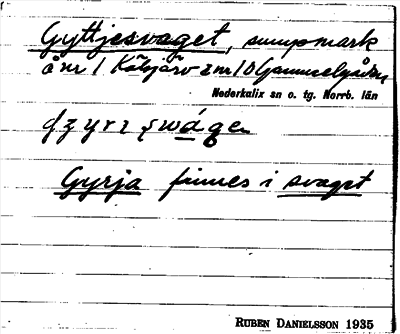 Gyttjesvaget, sumpmark
å nr 1 Kätsjärv o nr 10 Gammelgården
Nederkalix sn o. tg. Norrb. län
Gyrja finnes i svaget
RUBEN DANIELSSON 1935